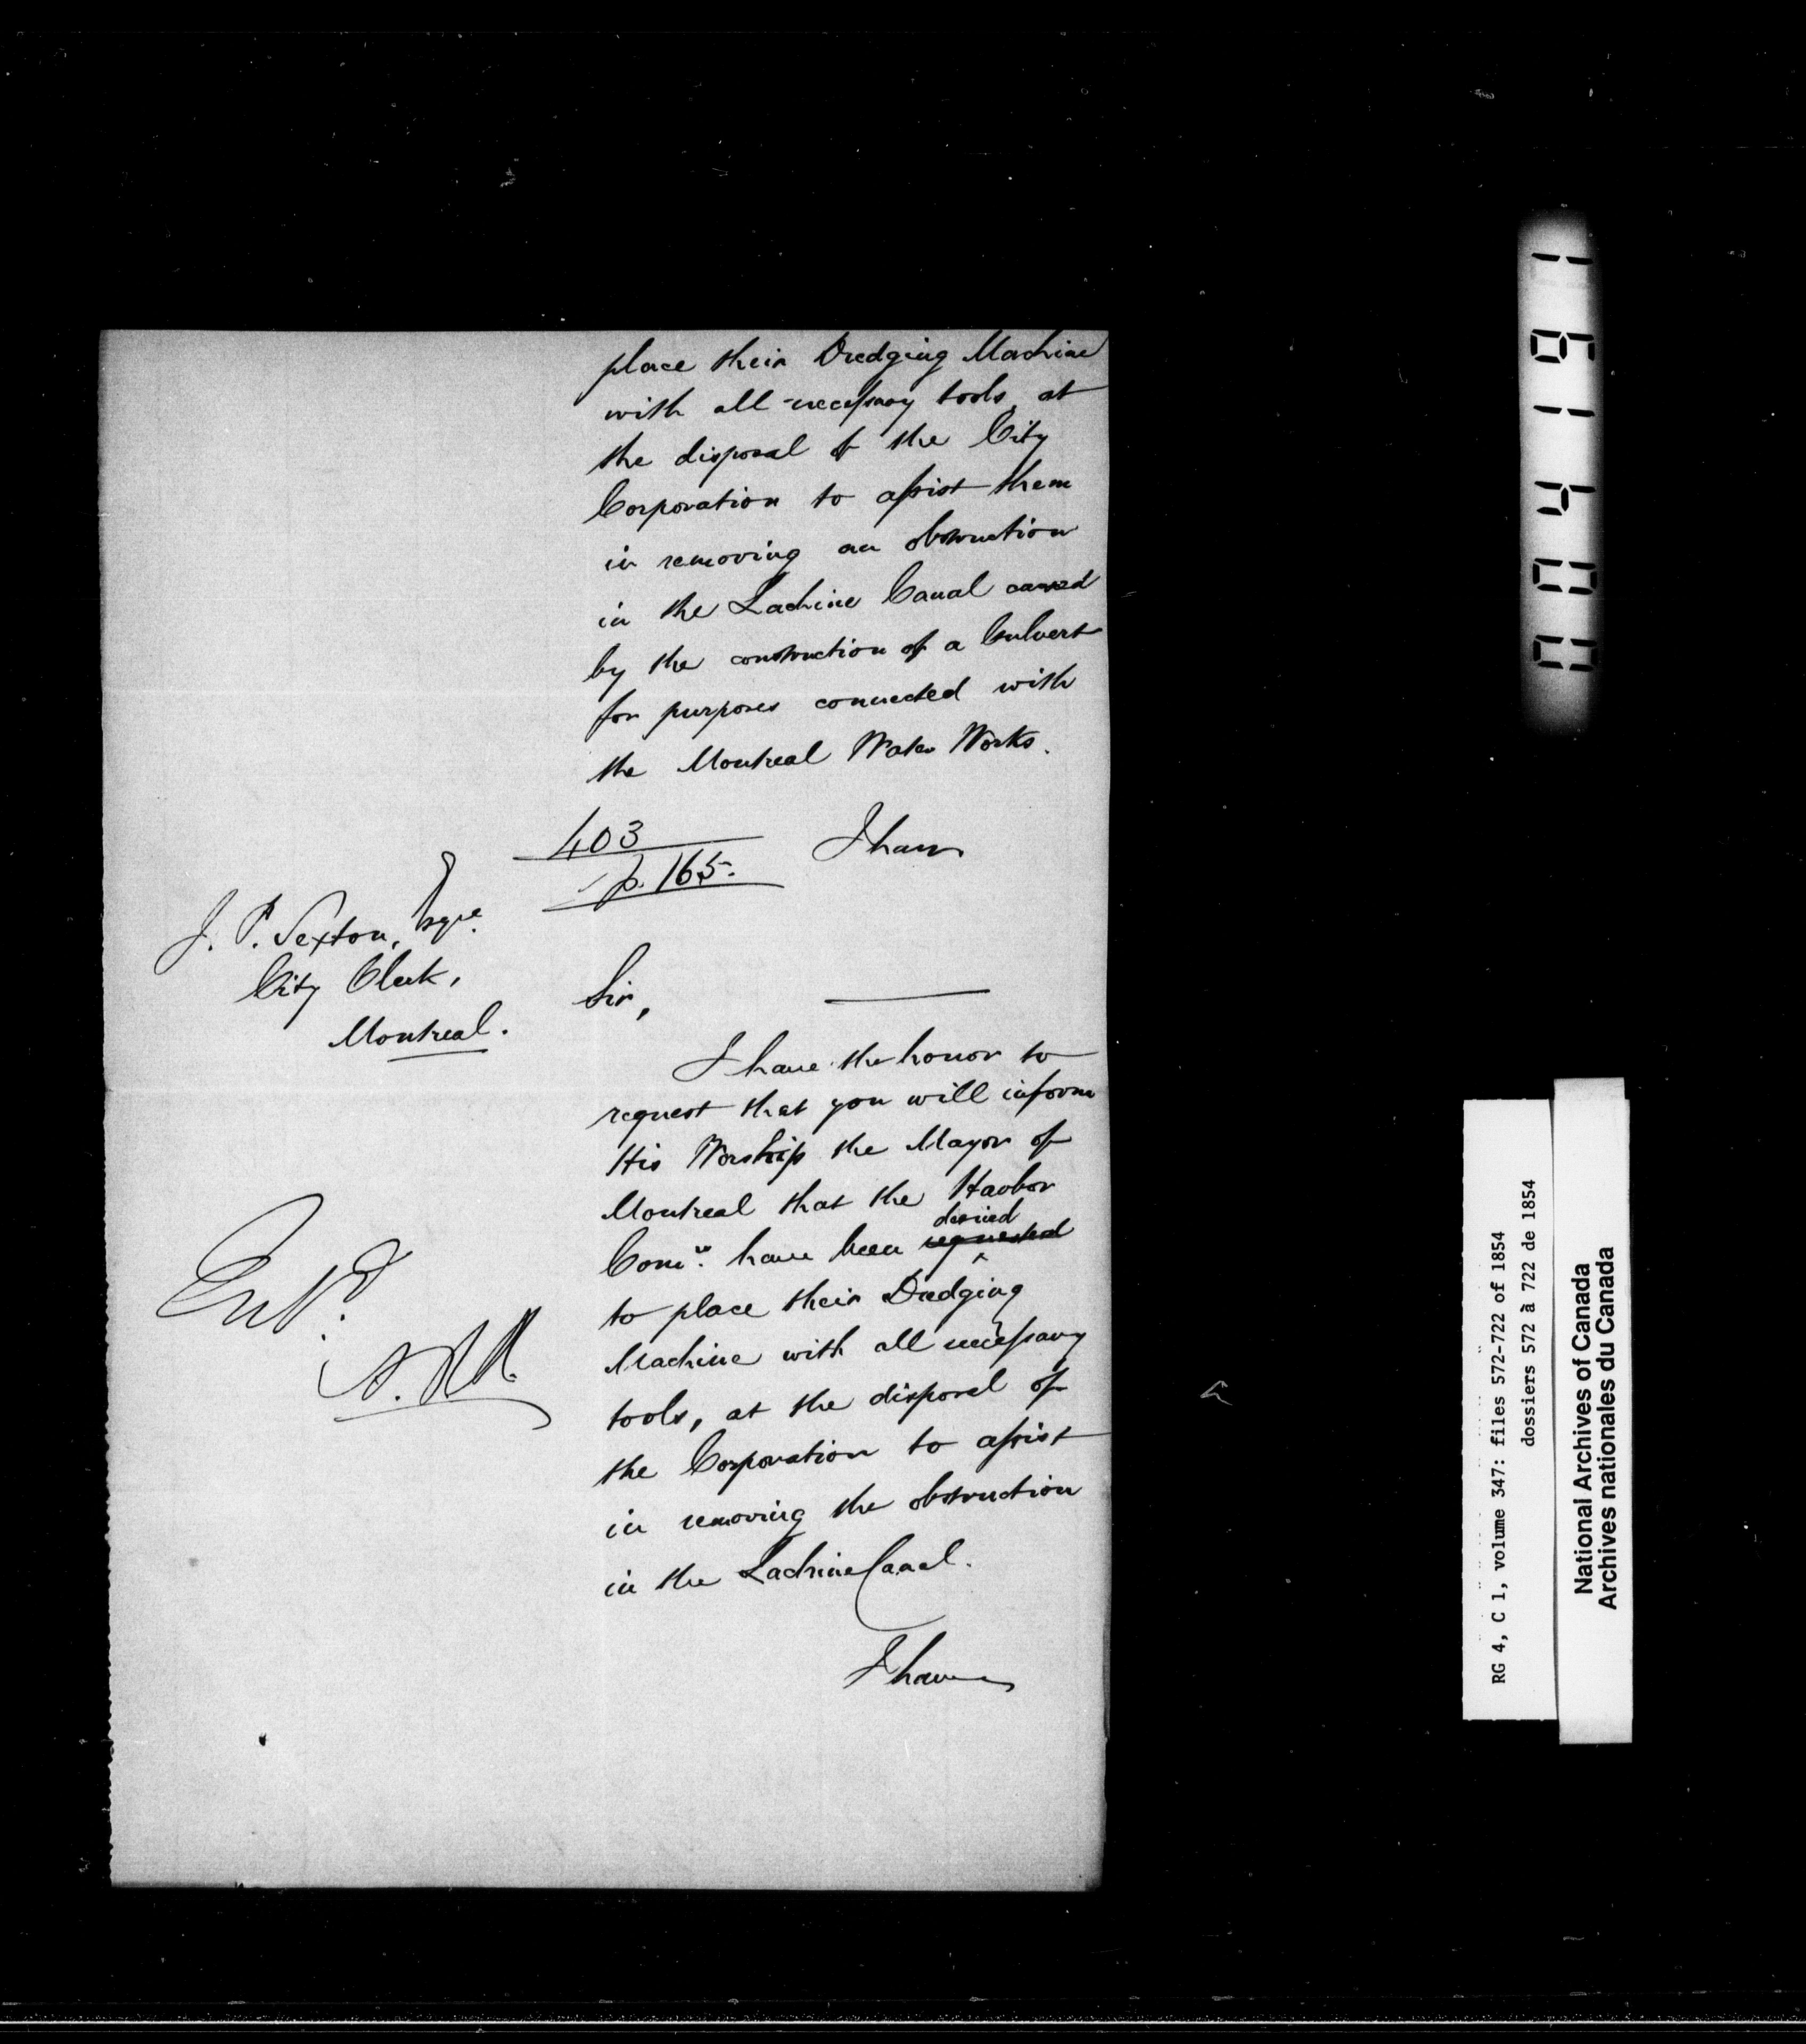 place their Dredging Machine
with all necessary tools, at
the disposal of the City
Corporation to assist them
in removing an obstruction
in the Lachine Canal caused
by the construction of a Culvert
for purposes connected with
the Montreal Water Works.
I have
403
p. 165.
J. P. Sexton, Esqre.
City Clerk,
Montreal.
Sir,
I have the honor to
request that you will inform
His Worship the Mayor of
Montreal that the Harbor
desired
Comrs. have been requested
to place their Dredging
Machine with all necessary
tools, at the disposal of
the Corporation to assist
in removing the obstruction
in the Lachine Canal.
I have
Entd.
004191
RG 4, C 1, volume 347: files 572-722 of 1854
dossiers 572 à 722 de 1854
National Archives of Canada
Archives nationales du Canada